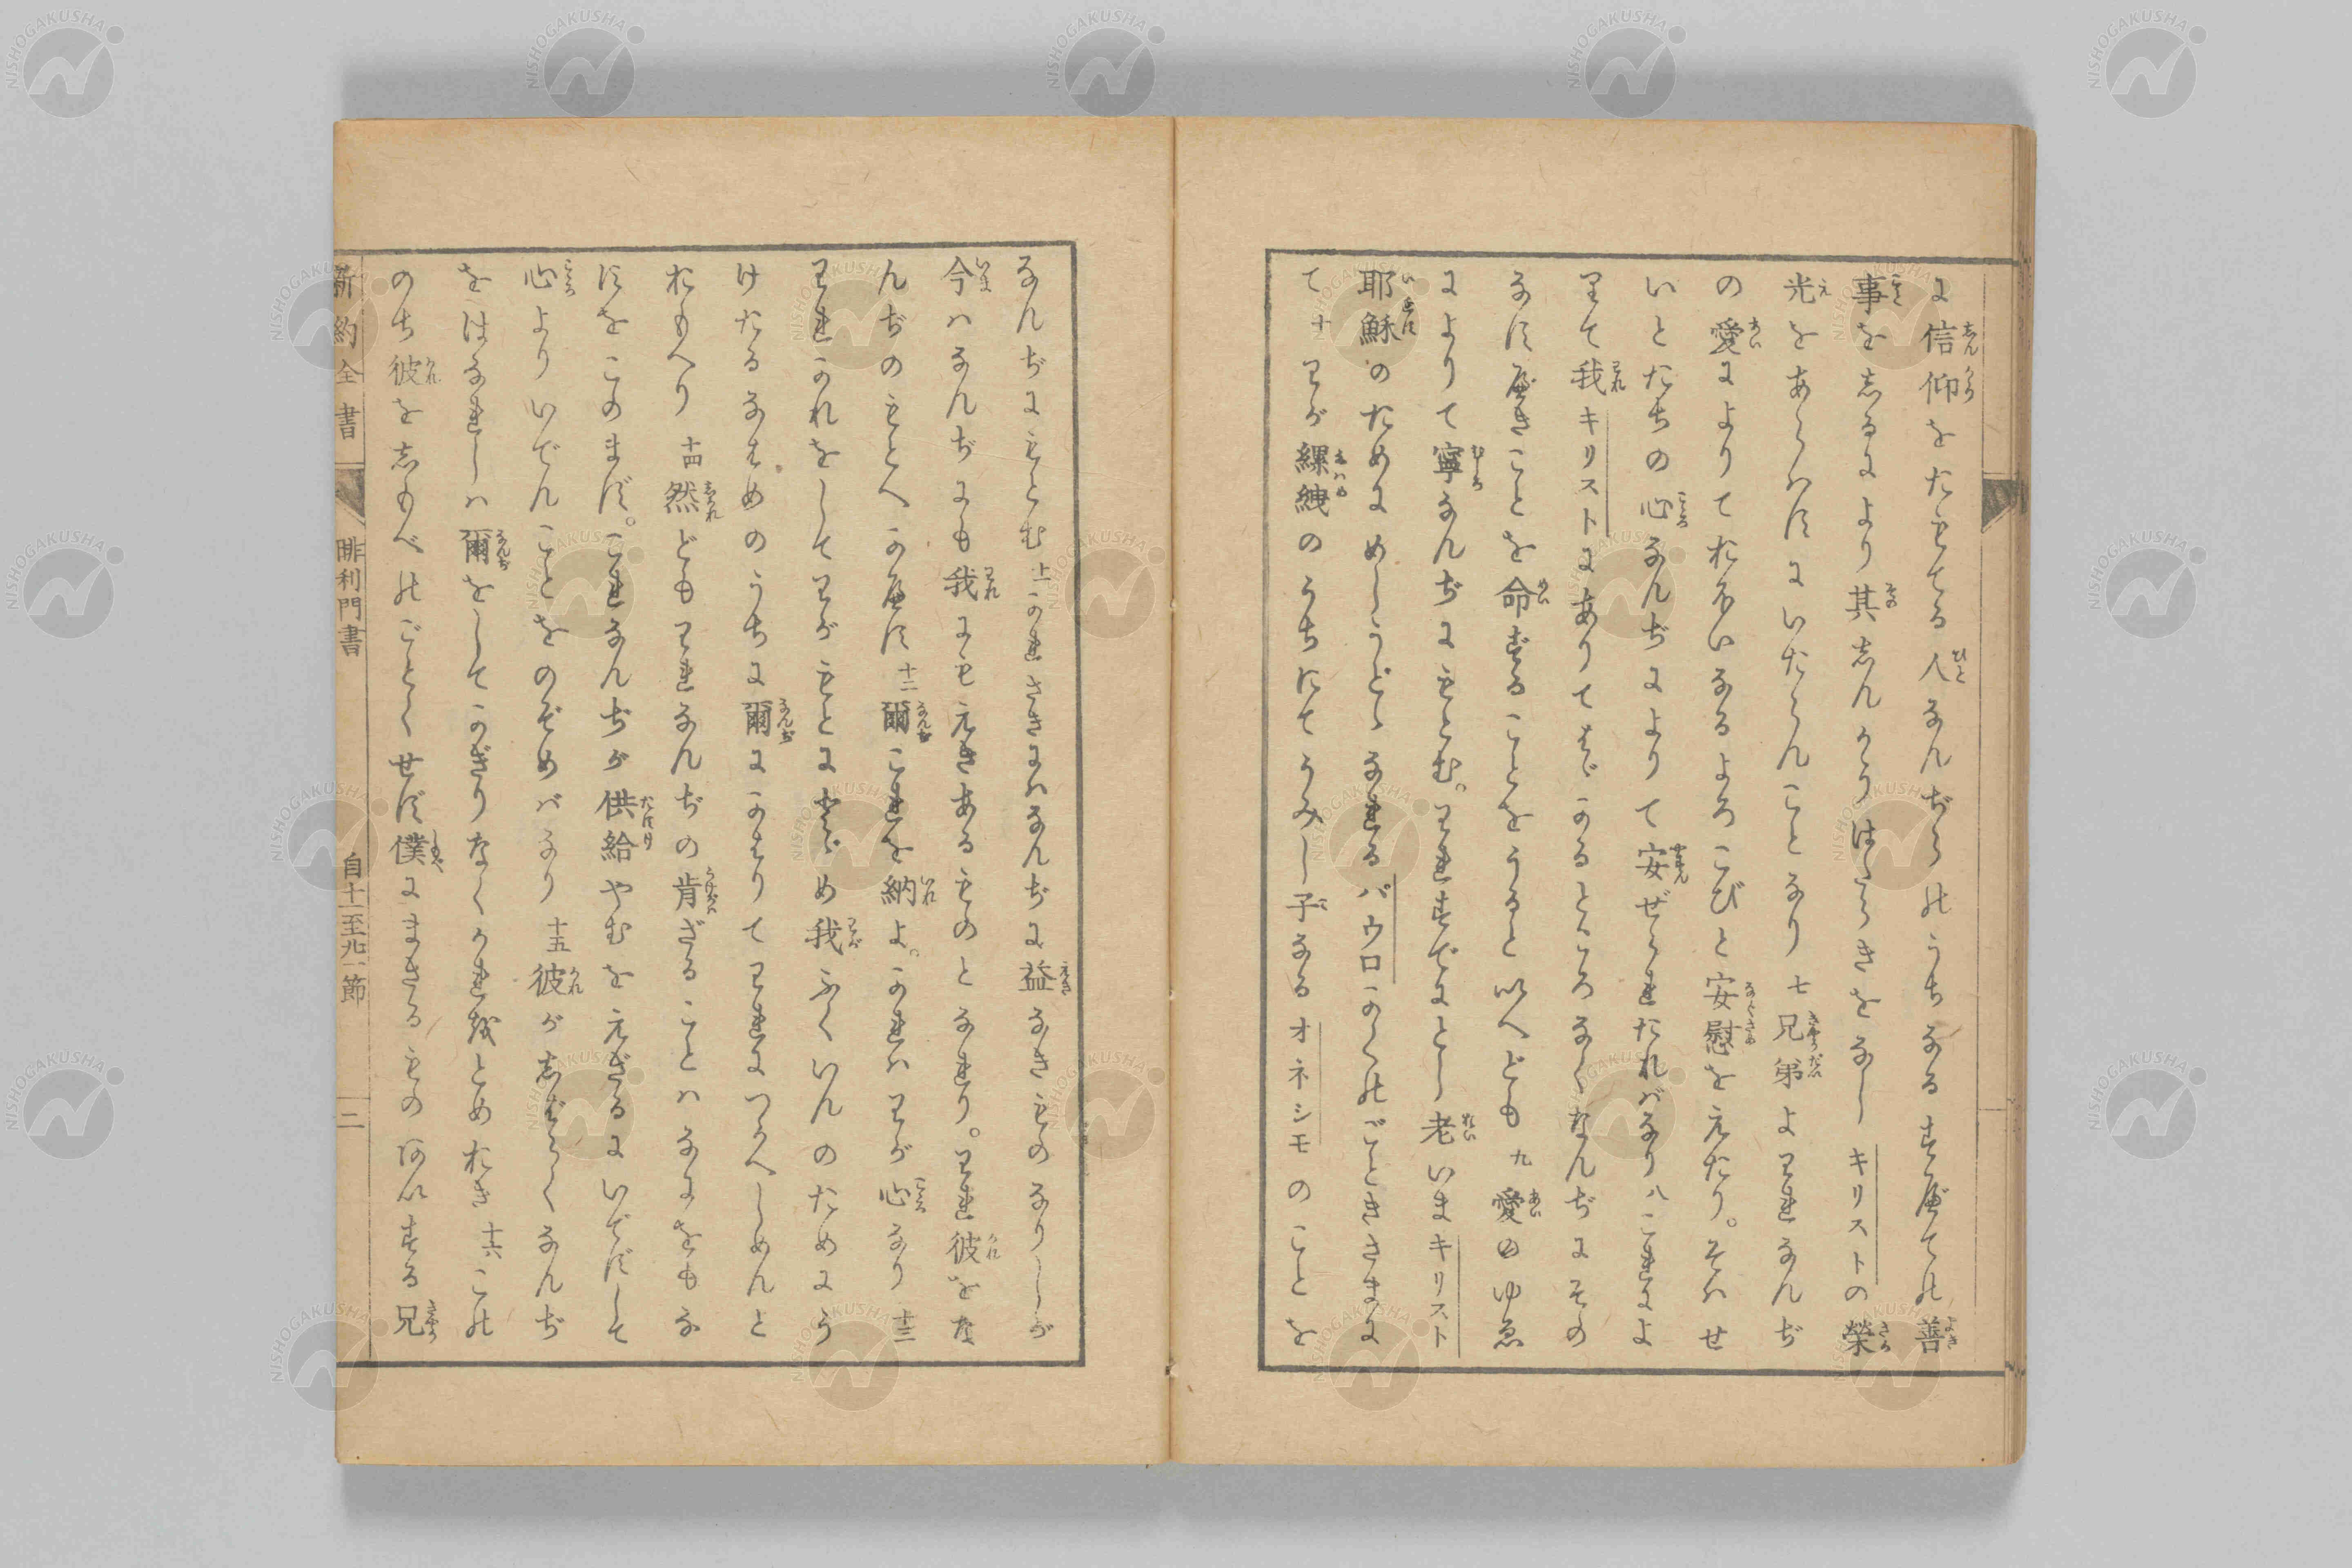 に信仰をたもてる人なんぢらのうちなるすべての善
事をしるにより其しんかうはたらきをなしキリストの榮
光をあらハすにいたらんことなり 七 兄弟よわれなんぢ
の愛によりておほいなるよろこびと安慰をえたり。そハせ
いとたちの心なんぢによりて安ぜられたれバなり 八 これによ
りて我キリストにありてはゞかるところなくなんぢにその
なすべきことを命ずることをうると以へども 九 愛のゆゑ
によりて寧なんぢにもとむ。われすでにとし老いまキリスト
耶穌のためにめしうどゝなれるパウロかくのごときさまに
て 十 わが縲絏のうちにてうみし子なるオネシモのことを
なんぢにもとむ 十一 かれさきにハなんぢに益なきものなりしが
今ハなんぢにも我にもえきあるものとなれり。われ彼をな
んぢのもとへかへす 十二 爾これを納よ。かれハわが心なり 十三
われかれをしてわがもとにとゞめ我ふくいんのためにう
けたるなはめのうちに爾にかはりてわれにつかへしめんと
おもへり 十四 然どもわれなんぢの肯ざることハなにをもな
すをこのまず。これなんぢが供給やむをえざるにいでずして
心よりいでんことをのぞめバなり 十五 彼がしばらくなんぢ
をはなれしハ爾をしてかぎりなくかれをとめおき 十六 この
のち彼をしもべのごとくせず僕にまさるものあいする兄
新約全書 腓利門書 自十一至 節 二
NISHOGAKUSHA